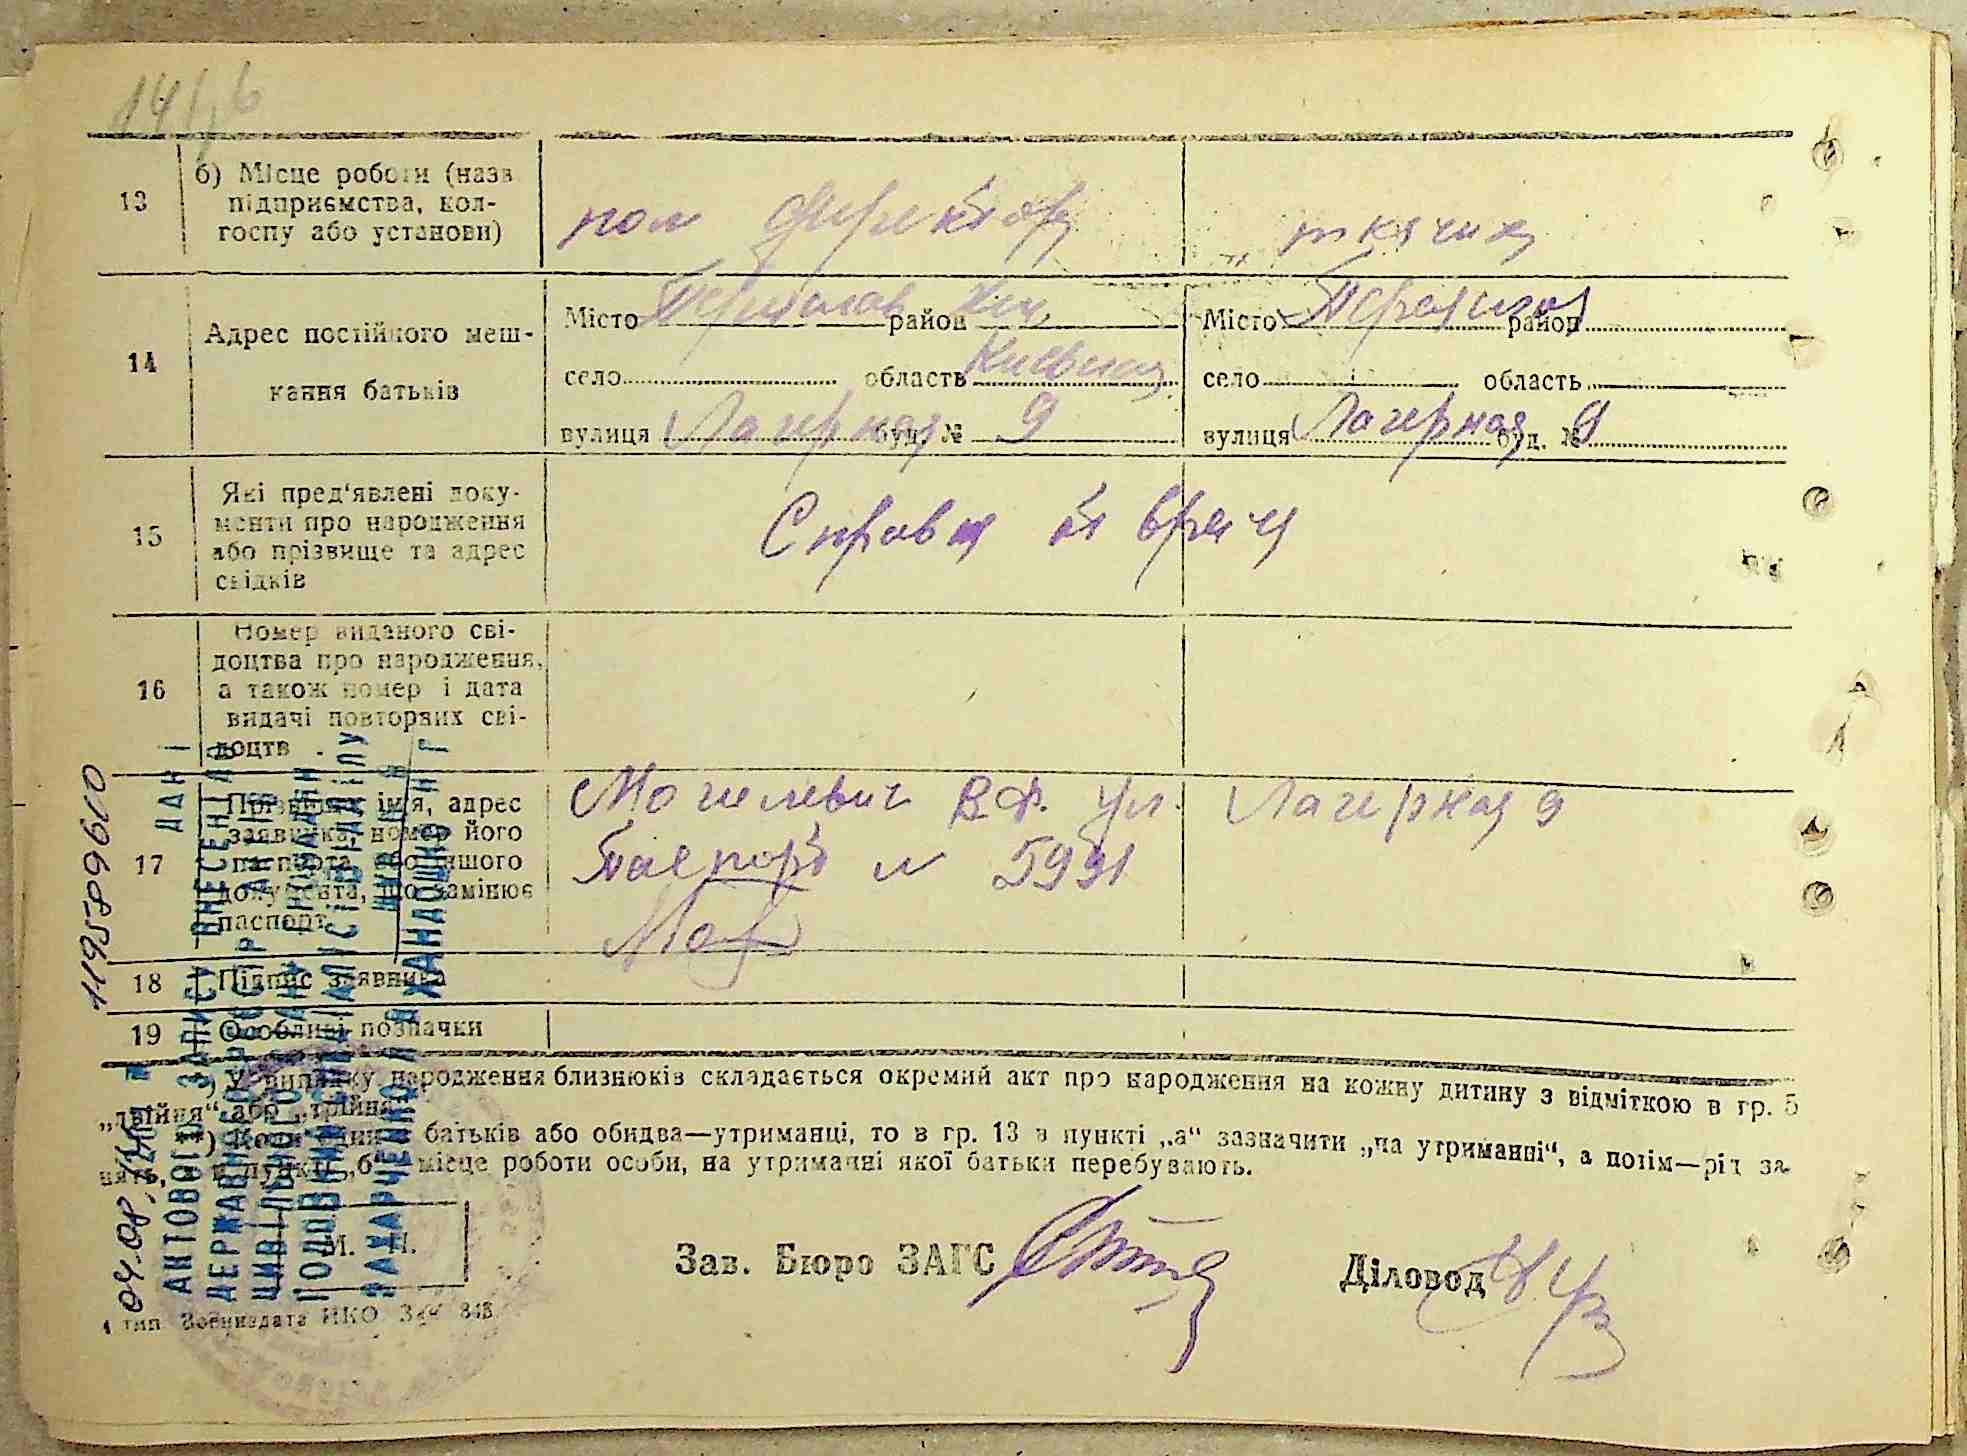 13 б) Місце роботи (назв
підприємства, кол-
госпу або установи)
пом директора ткачиха
14 Адрес постійного меш-
кання батьків
Місто район Місто район
село область Киевская село область
вулиця Лагерная буд. № 9 вулиця Лагерная буд. № 9
15 Які пред'явлені доку-
менти про народження
або прізвище та адрес
свідків
Справка врача
16 Номер виданого сві-
доцтва про народження,
а також номер і дата
видачі повторних сві-
доцтв
17 Прізвище, ім'я, адрес
заявника, номер його
паспорта або іншого
документа, що замінює
паспорт
Могилевич В.Ф. ул. Лагерная 9
Паспорт № 5991
18 Підпис заявника
19 Особливі позначки
*) У випадку народження близнюків складається окремий акт про народження на кожну дитину з відміткою в гр. 5
„двійня“ або „трійня“
**) Коли один з батьків або обидва—утриманці, то в гр. 13 в пункті „а“ зазначити „на утриманні“, а потім—рід за-
нять, в пункті „б“ місце роботи особи, на утриманні якої батьки перебувають.
М. П.
Зав. Бюро ЗАГС Діловод
4 тип Воениздата НКО Зак 848
ДАНІ
АКТОВОГО ЗАПИСУ ВНЕСЕНІ ДО
ДЕРЖАВНОГО РЕЄСТРУ АКТІВ
ЦИВІЛЬНОГО СТАНУ ГРОМАДЯН
1195789610
04.08